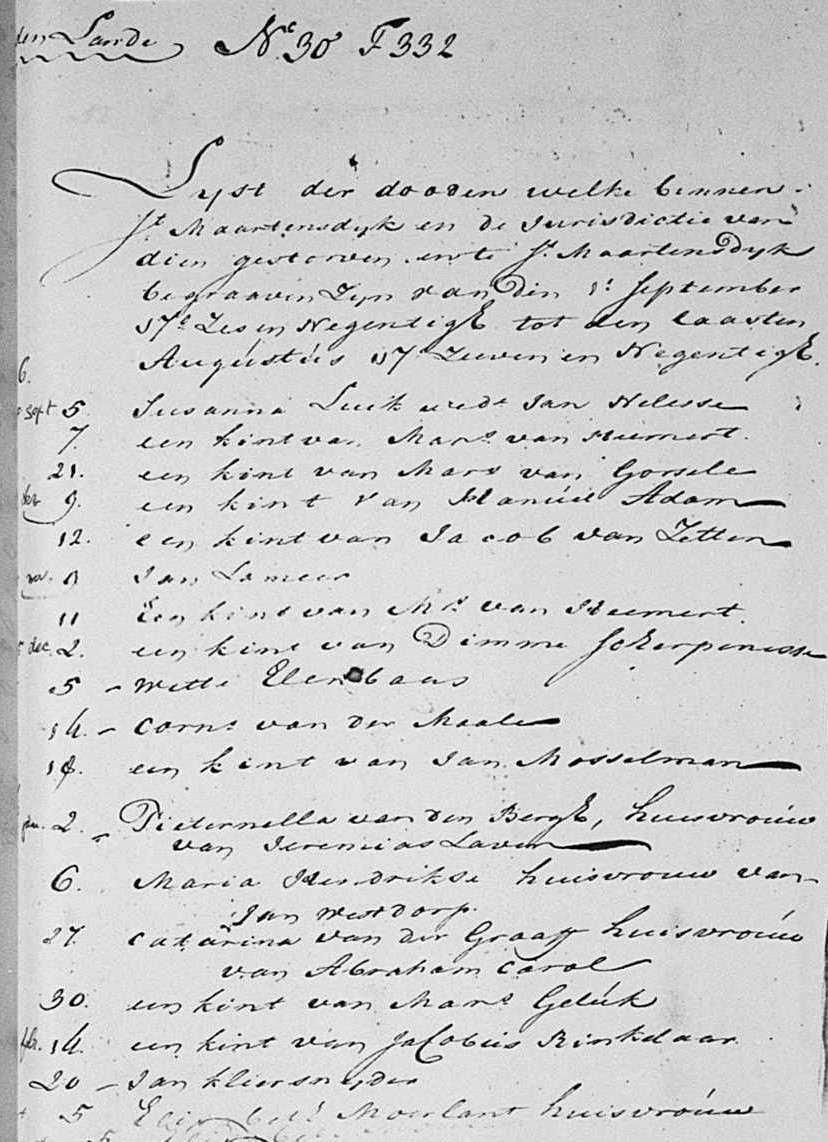 Lande Nº 30 F 332
Lyst der dooden welke binnen
St Maartensdyk en de Jurisdictie van
dien gestorven ente St Maartensdyk
begraaven Zyn van Den 1e September
17e Zes en Negentigh tot den laasten
Augústús 17e Zeeven en Negentigh.
6.
sept 5. Susanna Luik wedt Jan Nelisse
7. een kint van Mars van Heemert.
21. een kint van Mars van Gorsele
9. een kint van Manúel Adam
12. een kint van Jacob van Zetten
Jan Lameer
11 Een kint van Ms van Heemert.
dec. 2. een kint van Dimme Scherpenisse
5 – Witte Elenbaas
14. – Corns van der Maale
18. een kint van Jan Mosselman
2. – Pieternella van den Bergh, huisvroúw
van Jeremias Laven
6. Maria Hendrikse huisvrouw van
Jan Westdorp.
27. Catarina van der Graaff huisvroúw
van Abraham Carol
30. een kint van Mars Gelúk
feb. 14. een kint van Jacobús Rinkelaar
20 – Jan Kliersnyder
5 Moerlant huisvroúw